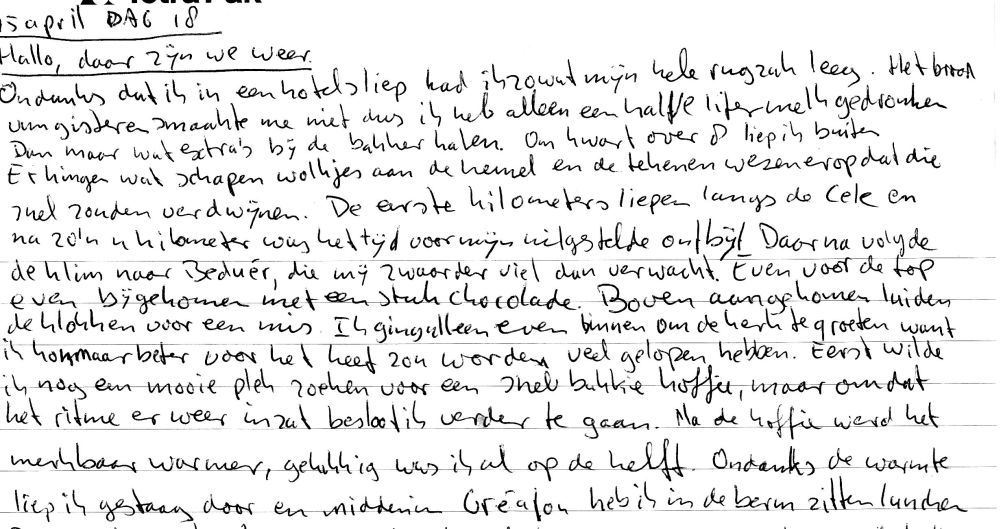 15 april DAG 18
Hallo, daar zijn we weer.
Ondanks dat ik in een hotel sliep had ik zowat mijn hele rugzak leeg. Het brood
van gisteren smaakte me niet dus ik heb alleen een halffe liter melk gedronken
Dan maar wat extra's bij de bakker halen. Om kwart over 8 liep ik buiten
Er hingen wat schapen wolkjes aan de hemel en de tekenen wezen erop dat die
snel zouden verdwijnen. De eerste kilometers liepen langs de Cele en
na zo'n u kilometer was het tijd voor mijn uitgestelde ontbijt Daarna volgde
de klim naar Beduér, die mij zwaarder viel dan verwacht. Even voor de top
even bijgekomen met een stuk chocolade. Boven aangekomen luiden
de klokken voor een mis. Ik ging alleen even binnen om de kerk te groeten want
ik kon maar beter voor het heet zou worden veel gelopen hebben. Eerst wilde
ik nog een mooie plek zoeken voor een snel bakkie koffie, maar omdat
het ritme er weer in zat besloot ik verder te gaan. Na de koffie werd het
merkbaar warmer, gelukkig was ik al op de helft. Ondanks de warmte
liep ik gestaag door en midden in Gréalou heb ik in de berm zitten lunchen